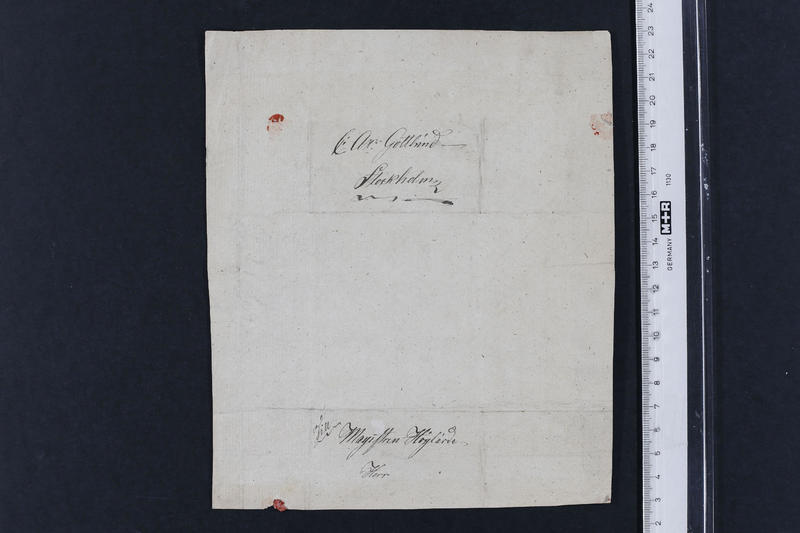 C. Ax: Gottlund
Stockholm
Magistern Höglärde
Herr
24
23
22
21
20
19
18
17
16
15
14
13
12
11
10
9
8
7
6
5
4
3
2
GERMANY M+R 1130